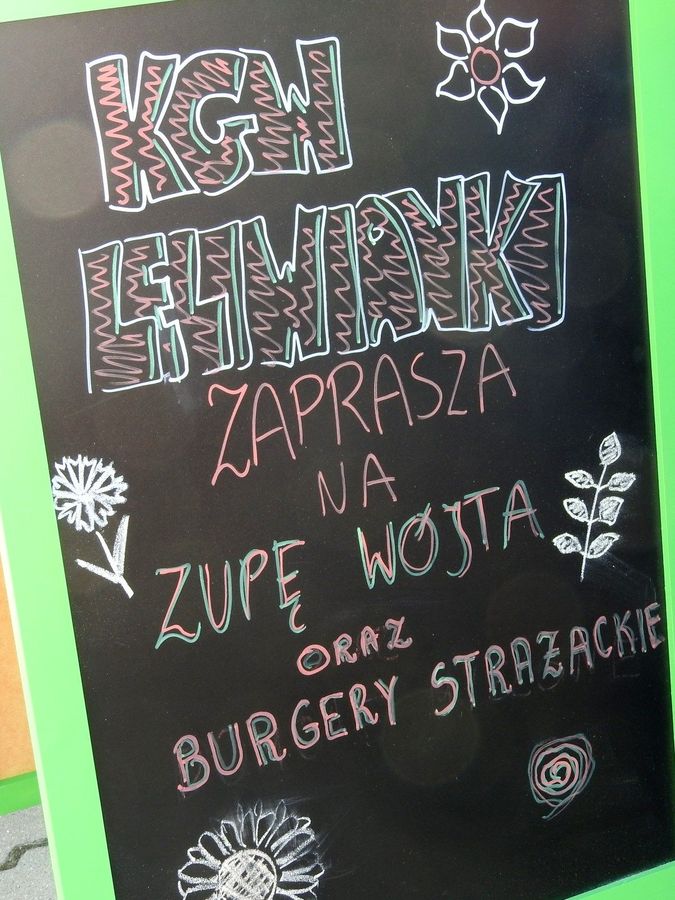 KGW
LESZWIANKI
ZAPRASZA
NA
ZUPĘ WÓJTA
ORAZ
BURGERY STRAŻACKIE